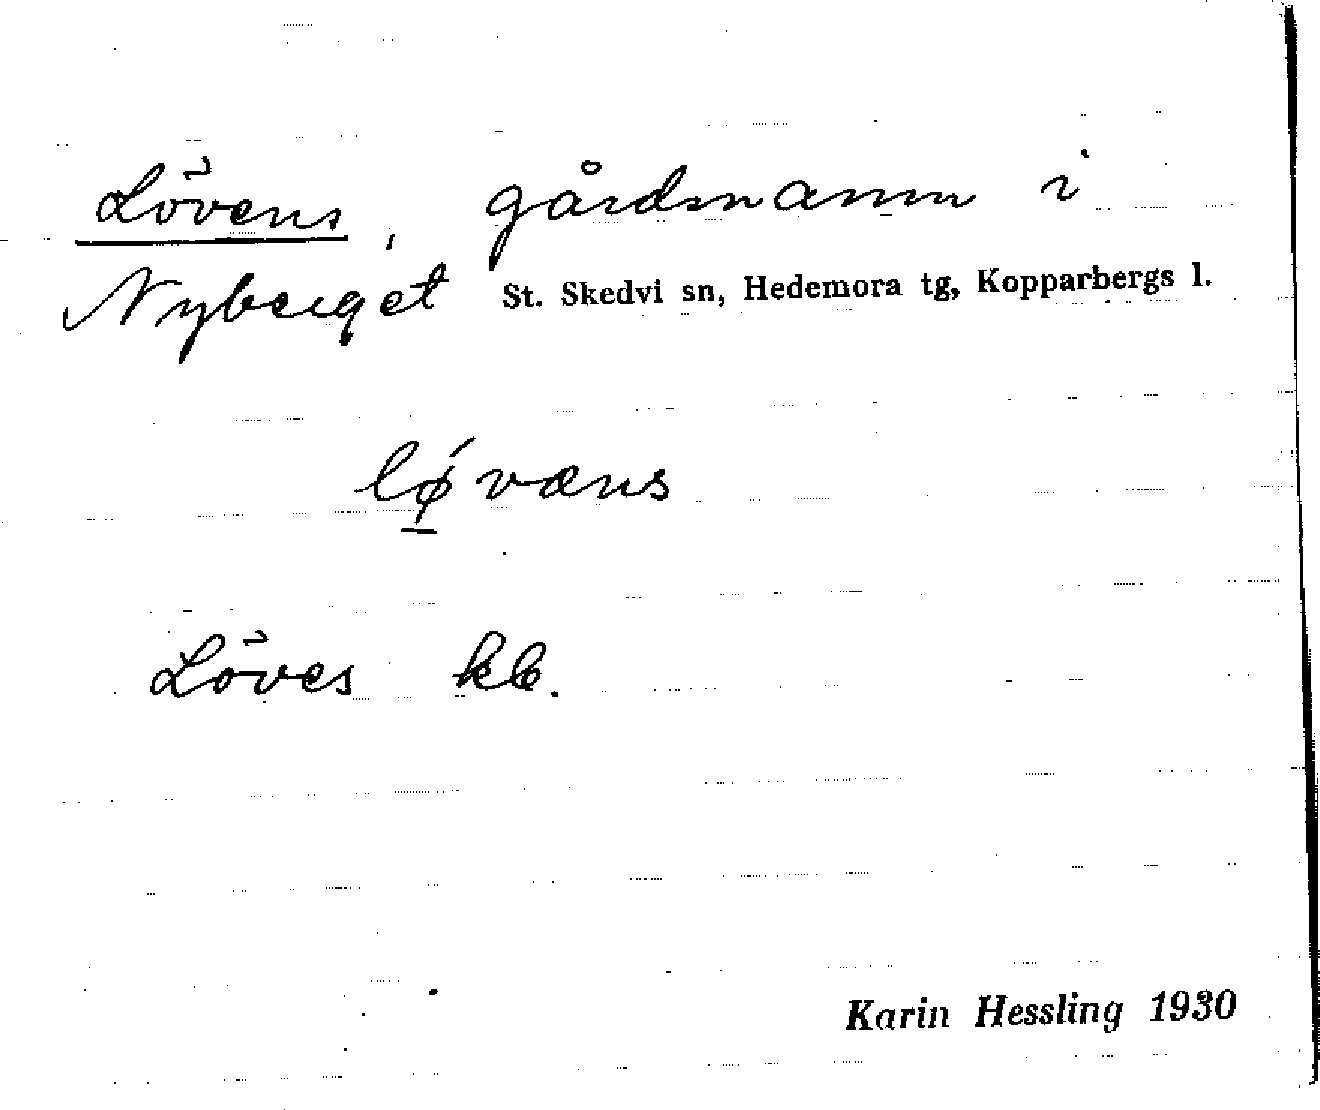 Lövens, gårdsnamn i
Nyberget St. Skedvi sn, Hedemora tg, Kopparbergs l.
lǿ̱væns
Löves kb.
Karin Hessling 1930